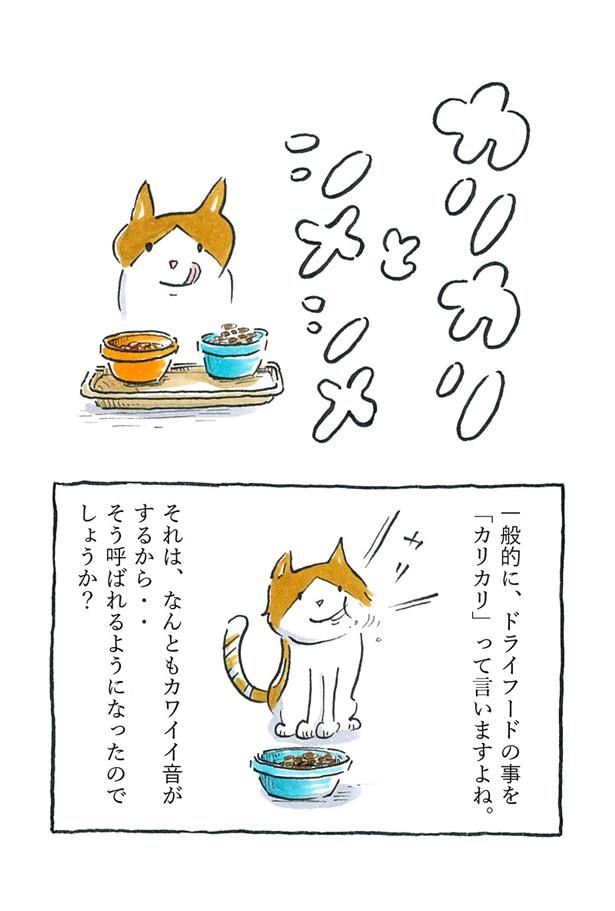 カリカリ
と
シメシメ
一般的に、ドライフードの事を
「カリカリ」って言いますよね。
カリッ
それは、なんともカワイイ音が
するから・・
そう呼ばれるようになったので
しょうか？